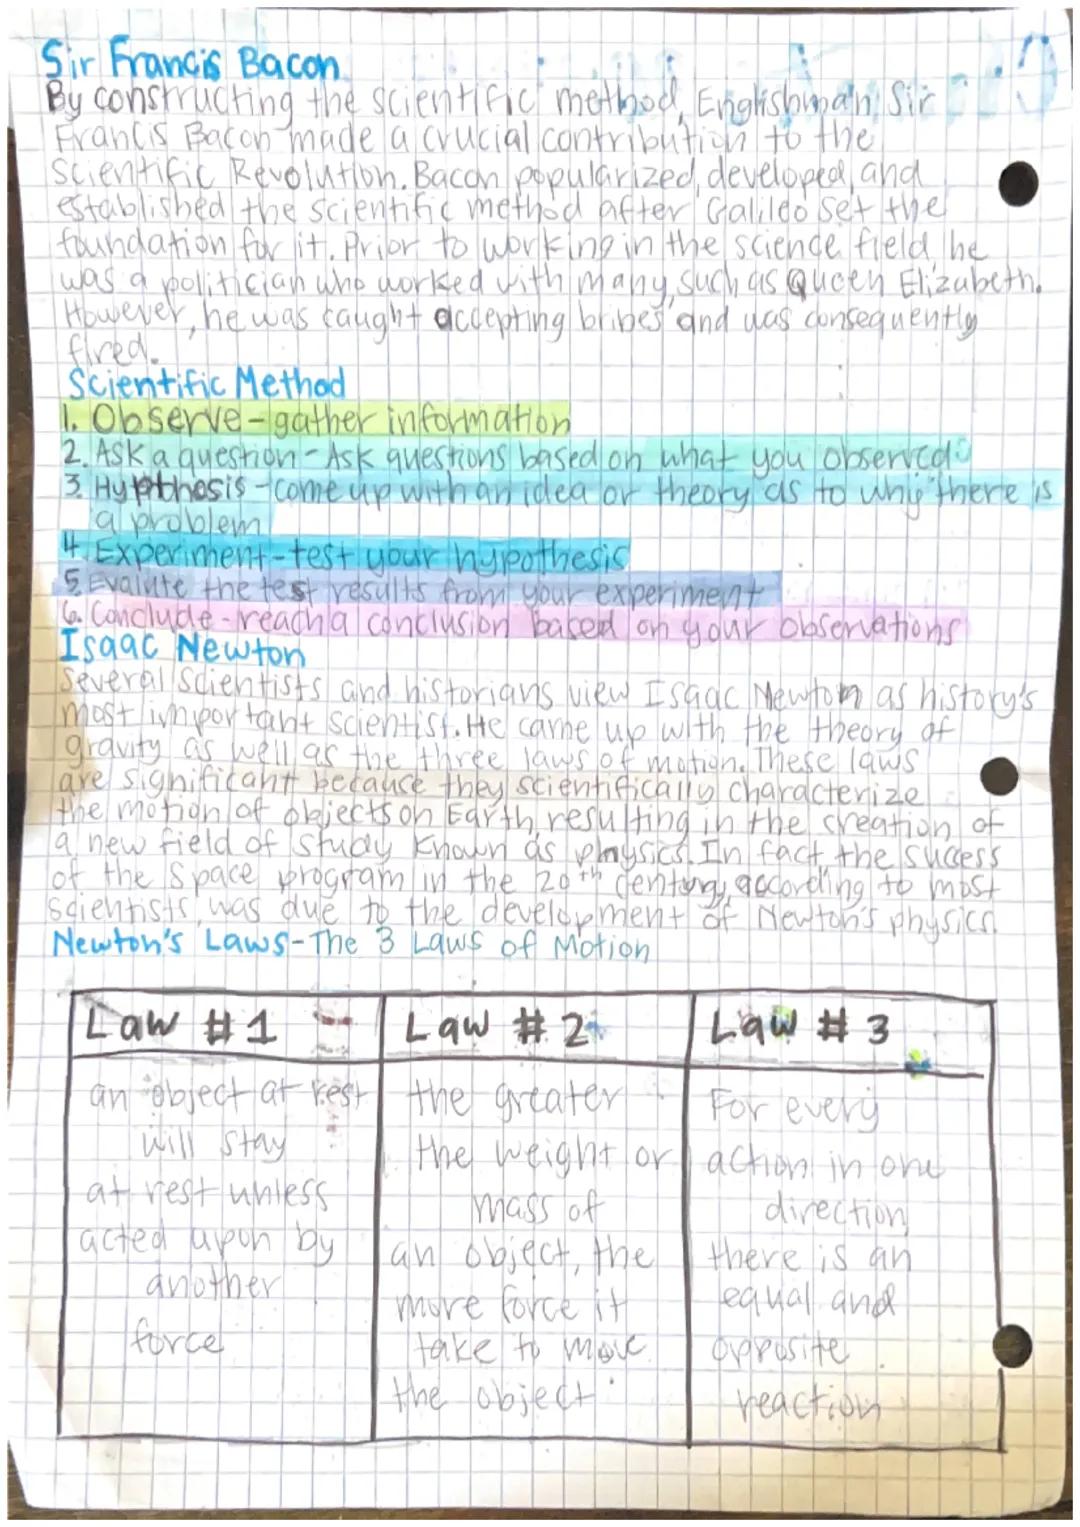 Sir Francis Bacon
By constructing the scientific method, Englishman Sir
Francis Bacon made a crucial contribution to the
Scientific Revolution. Bacon popularized, developed, and
established the scientific method after Galileo set the
foundation for it. Prior to working in the science field, he
was a politician who worked with many, such as Queen Elizabeth.
However, he was caught accepting bribes and was consequently
fired.
Scientific Method
1. Observe - gather information
2. Ask a question - Ask questions based on what you observed?
3. Hypthesis - come up with an idea or theory as to why there is
a problem
4. Experiment - test your hypothesis
5. Evalute the test results from your experiment
6. Conclude - reach a conclusion based on your observations
Isaac Newton
Several scientists and historians view Isaac Newton as history's
most important scientist. He came up with the theory of
gravity as well as the three laws of motion. These laws
are significant because they scientifically characterize
the motion of objects on Earth, resulting in the creation of
a new field of study known as physics. In fact, the sucess
of the Space program in the 20th century, according to most
scientists, was due to the development of Newton's physics.
Newton's Laws - The 3 Laws of Motion
Law #1 Law # 2 Law # 3
an object at rest
will stay
at rest unless
acted upon by
another
force
the greater
the weight or
mass of
an object, the
more force it
take to move
the object
For every
action in one
direction,
there is an
equal and
opposite
reaction